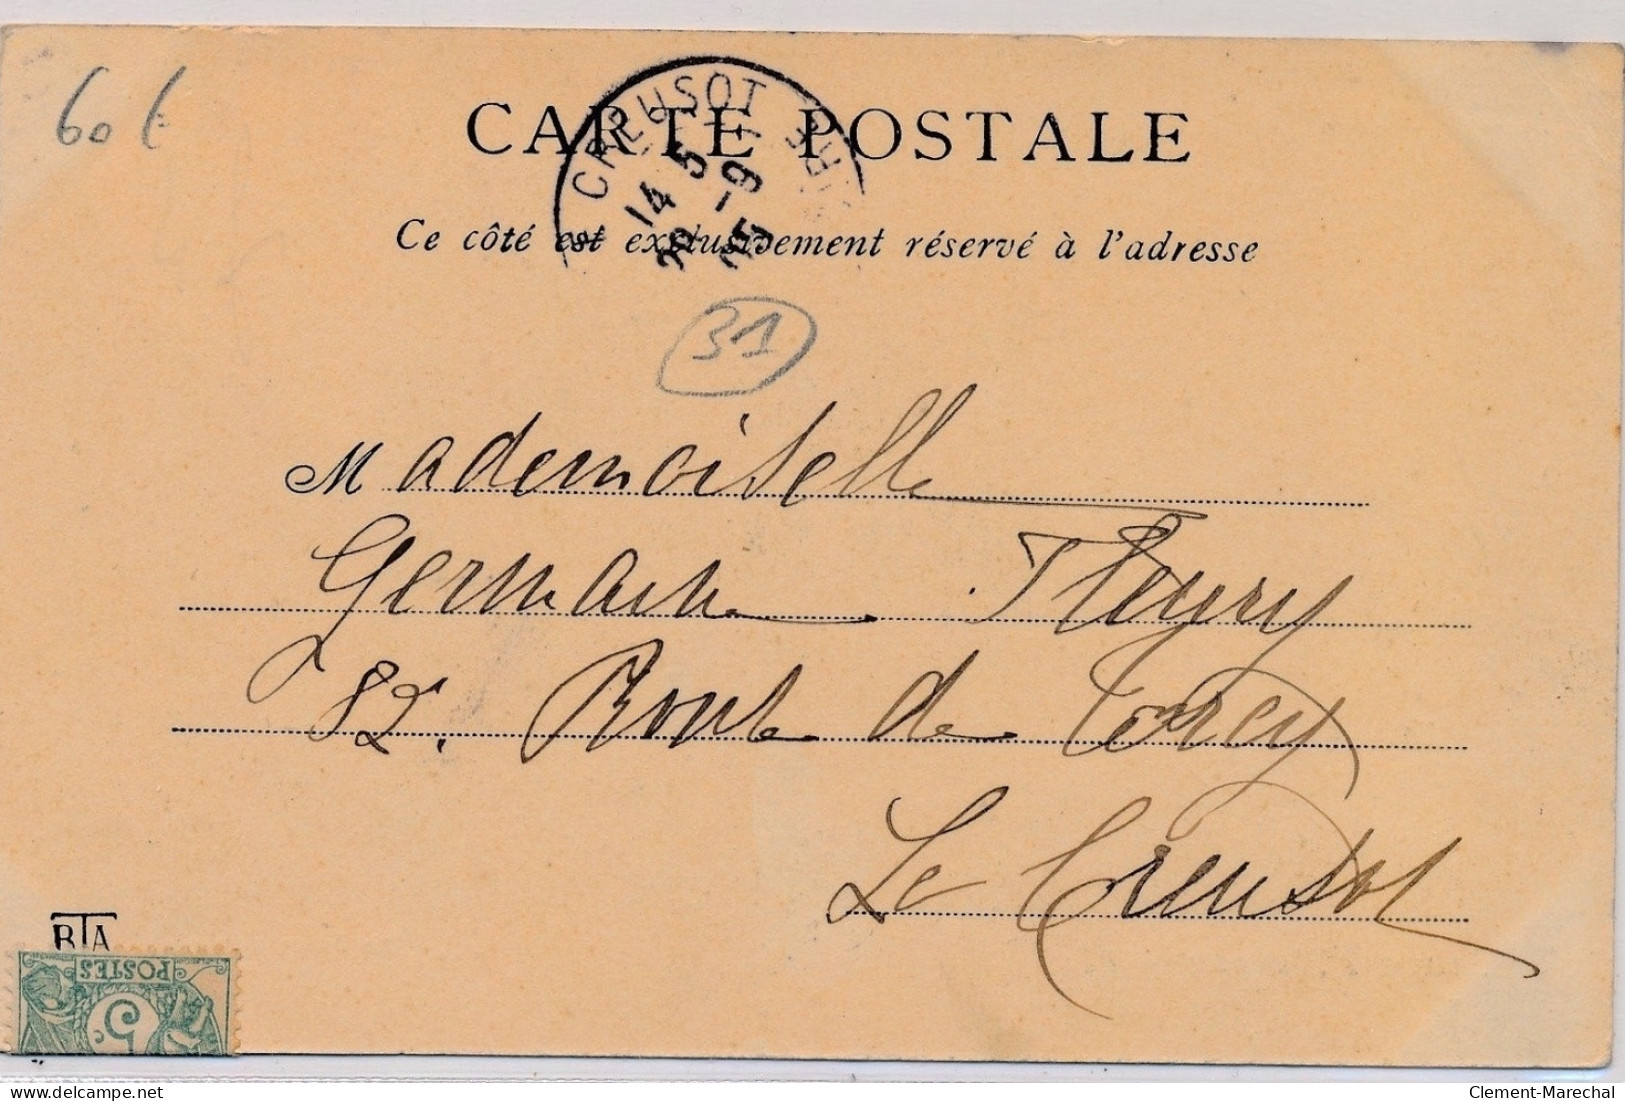 60 €
CARTE POSTALE
CREUSOT
14 5
-9
Ce côté est exclusivement réservé à l'adresse
31
Mademoiselle
Germaine Fleury
82. Route de Torcy
Le Creusot
BTA
POSTES
5c
Clement-Marechal